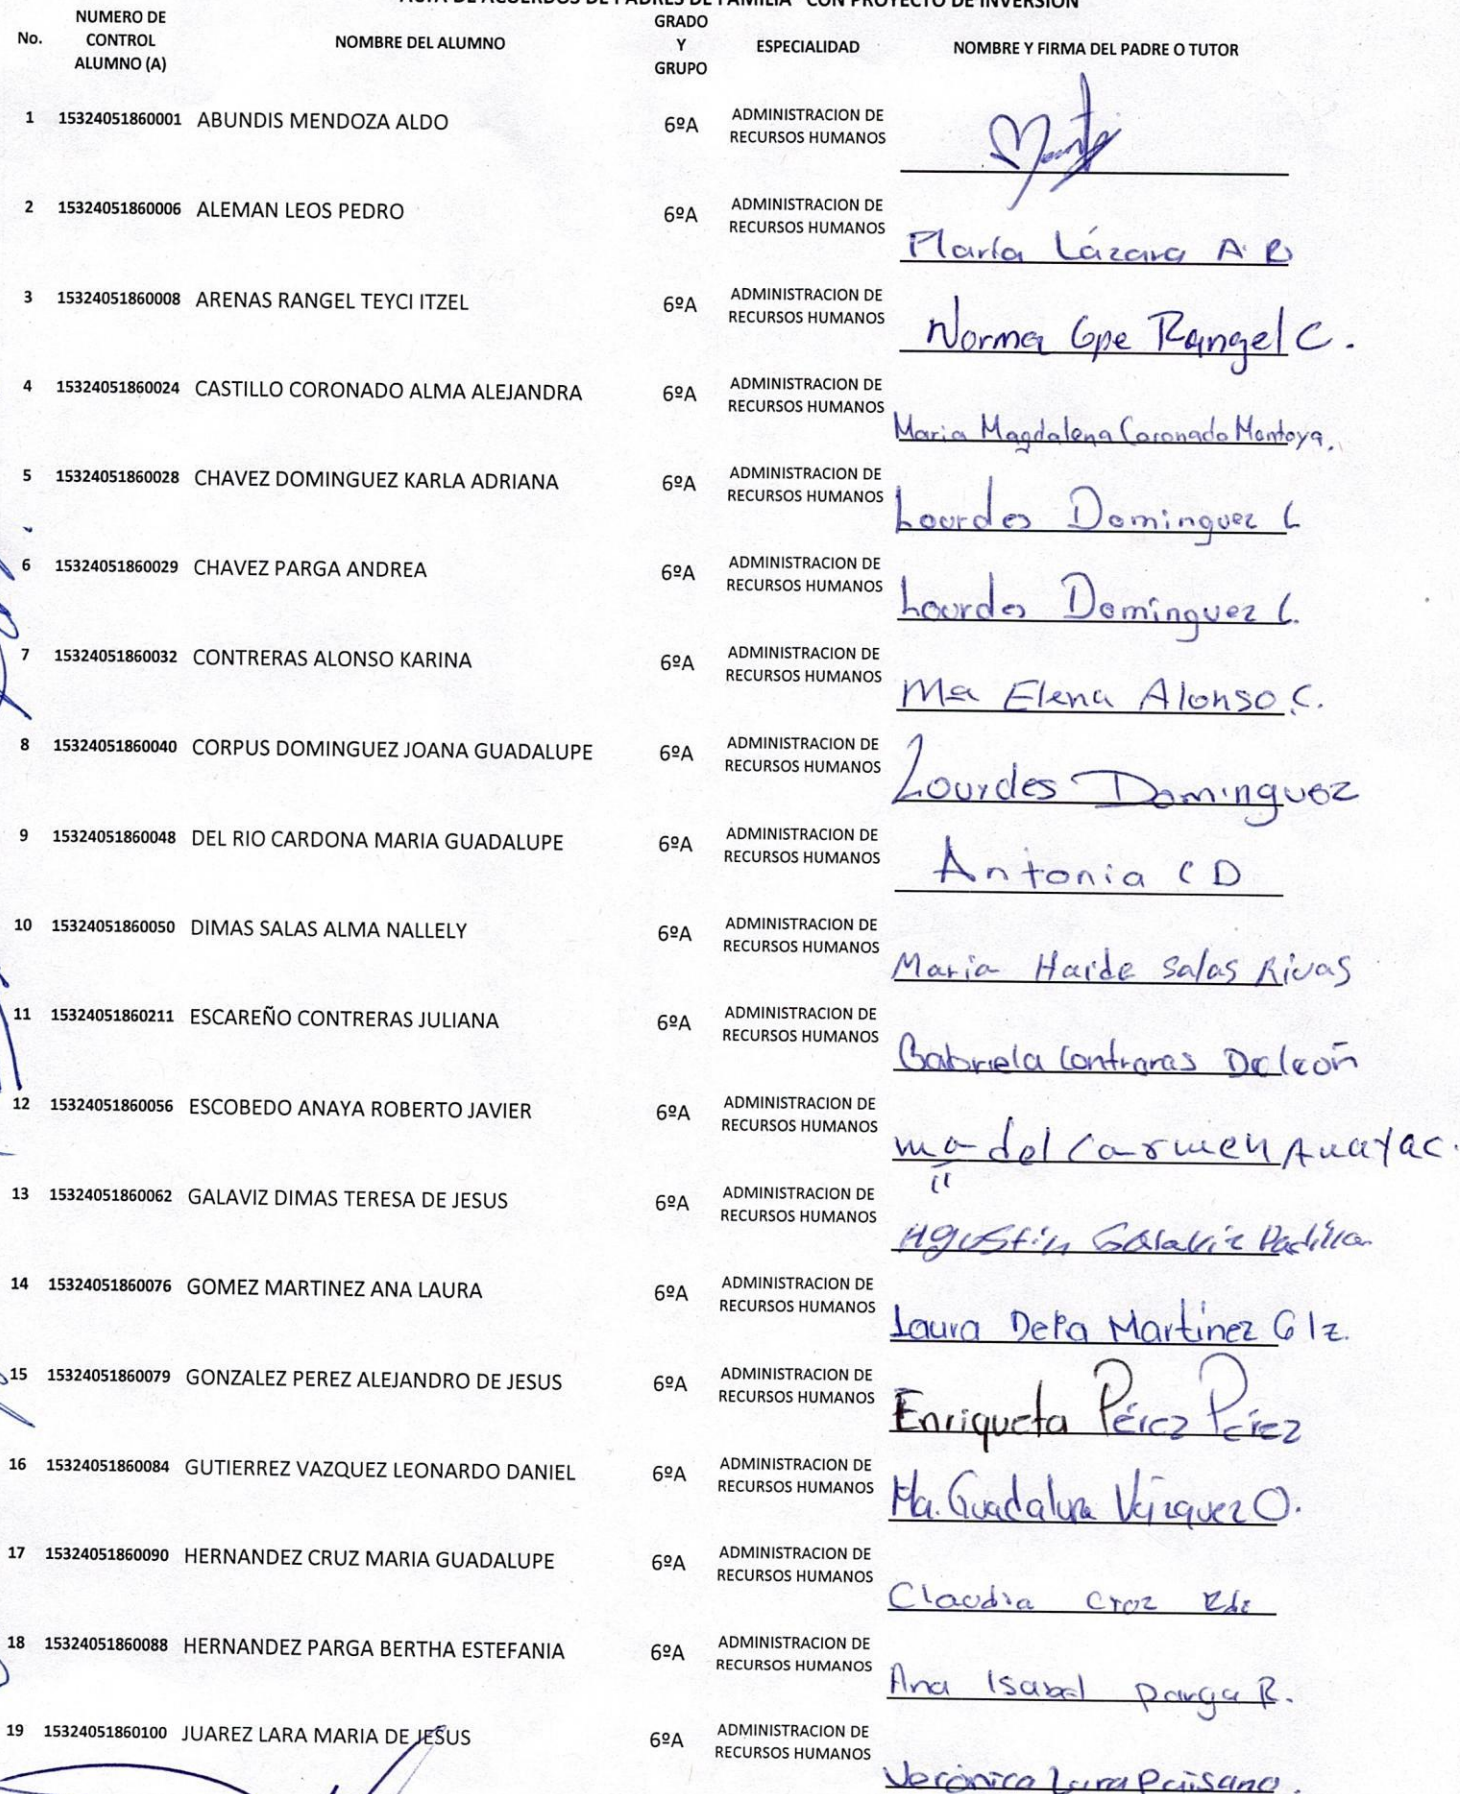 ACTA DE ACUERDOS DE PADRES DE FAMILIA CON PROYECTO DE INVERSION
No. NUMERO DE CONTROL ALUMNO (A) NOMBRE DEL ALUMNO GRADO Y GRUPO ESPECIALIDAD NOMBRE Y FIRMA DEL PADRE O TUTOR
1 15324051860001 ABUNDIS MENDOZA ALDO 6ºA ADMINISTRACION DE RECURSOS HUMANOS
2 15324051860006 ALEMAN LEOS PEDRO 6ºA ADMINISTRACION DE RECURSOS HUMANOS María Lázara A.
3 15324051860008 ARENAS RANGEL TEYCI ITZEL 6ºA ADMINISTRACION DE RECURSOS HUMANOS Norma Gpe Rangel C.
4 15324051860024 CASTILLO CORONADO ALMA ALEJANDRA 6ºA ADMINISTRACION DE RECURSOS HUMANOS Maria Magdalena Coronado Montoya.
5 15324051860028 CHAVEZ DOMINGUEZ KARLA ADRIANA 6ºA ADMINISTRACION DE RECURSOS HUMANOS Lourdes Dominguez L
6 15324051860029 CHAVEZ PARGA ANDREA 6ºA ADMINISTRACION DE RECURSOS HUMANOS Lourdes Dominguez L.
7 15324051860032 CONTRERAS ALONSO KARINA 6ºA ADMINISTRACION DE RECURSOS HUMANOS Ma Elena Alonso C.
8 15324051860040 CORPUS DOMINGUEZ JOANA GUADALUPE 6ºA ADMINISTRACION DE RECURSOS HUMANOS Lourdes Dominguez
9 15324051860048 DEL RIO CARDONA MARIA GUADALUPE 6ºA ADMINISTRACION DE RECURSOS HUMANOS Antonia C D
10 15324051860050 DIMAS SALAS ALMA NALLELY 6ºA ADMINISTRACION DE RECURSOS HUMANOS Maria Haide Salas Rivas
11 15324051860211 ESCAREÑO CONTRERAS JULIANA 6ºA ADMINISTRACION DE RECURSOS HUMANOS Gabriela Contreras De león
12 15324051860056 ESCOBEDO ANAYA ROBERTO JAVIER 6ºA ADMINISTRACION DE RECURSOS HUMANOS ma del Carmen Anaya C.
13 15324051860062 GALAVIZ DIMAS TERESA DE JESUS 6ºA ADMINISTRACION DE RECURSOS HUMANOS Agustin Galaviz Padilla
14 15324051860076 GOMEZ MARTINEZ ANA LAURA 6ºA ADMINISTRACION DE RECURSOS HUMANOS Laura Delia Martínez Glz.
15 15324051860079 GONZALEZ PEREZ ALEJANDRO DE JESUS 6ºA ADMINISTRACION DE RECURSOS HUMANOS Enriqueta Pérez Pérez
16 15324051860084 GUTIERREZ VAZQUEZ LEONARDO DANIEL 6ºA ADMINISTRACION DE RECURSOS HUMANOS Ma. Guadalupe Vázquez O.
17 15324051860090 HERNANDEZ CRUZ MARIA GUADALUPE 6ºA ADMINISTRACION DE RECURSOS HUMANOS Claudia Cruz
18 15324051860088 HERNANDEZ PARGA BERTHA ESTEFANIA 6ºA ADMINISTRACION DE RECURSOS HUMANOS Ana Isabel parga R.
19 15324051860100 JUAREZ LARA MARIA DE JESUS 6ºA ADMINISTRACION DE RECURSOS HUMANOS Verónica Lara Paisano.